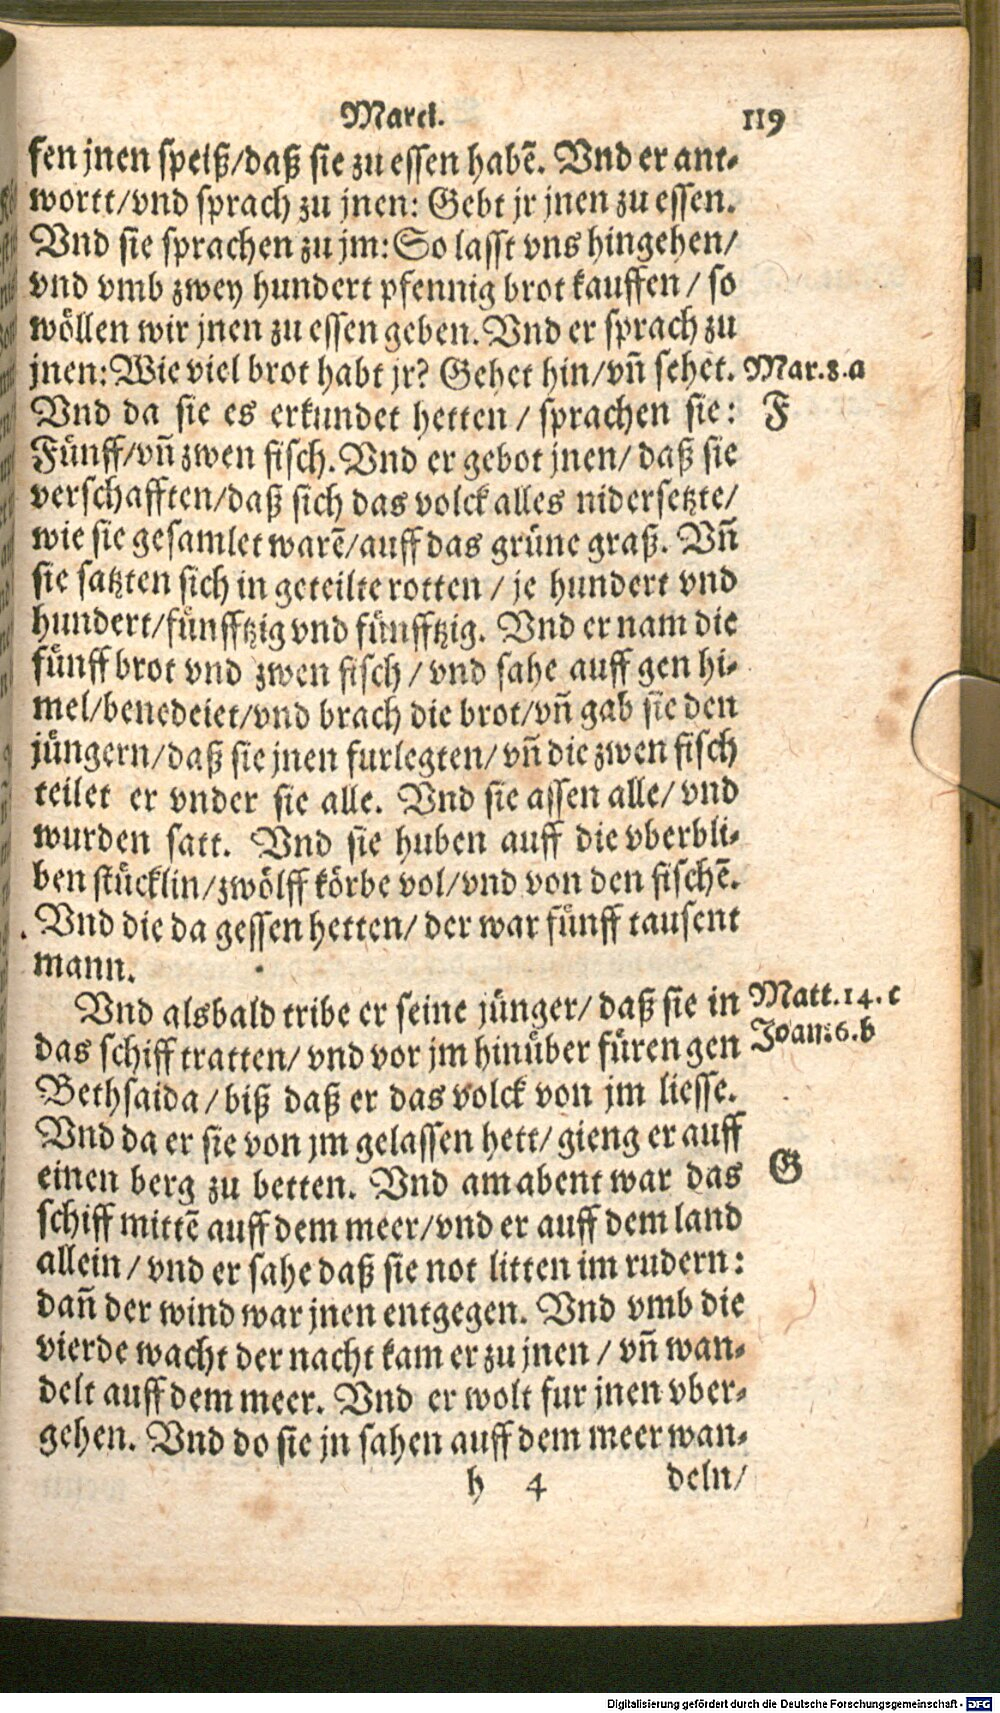 Marci. 119
fen jnen speiß/daß sie zu essen habē. Vnd er ant-
wortt/vnd sprach zu jnen: Gebt jr jnen zu essen.
Vnd sie sprachen zu jm: So lasst vns hingehen/
vnd vmb zwey hundert pfennig brot kauffen / so
wöllen wir jnen zu essen geben. Vnd er sprach zu
jnen: Wie viel brot habt jr? Gehet hin/vñ sehet. Mar.8.a
Vnd da sie es erkundet hetten / sprachen sie: F
Fünff/vñ zwen fisch. Vnd er gebot jnen/ daß sie
verschafften/daß sich das volck alles nidersetzte/
wie sie gesamlet warē/auff das grüne graß. Vñ
sie satzten sich in geteilte rotten / je hundert vnd
hundert/fünfftzig vnd fünfftzig. Vnd er nam die
fünff brot vnd zwen fisch / vnd sahe auff gen hi-
mel/benedeiet/vnd brach die brot/vñ gab sie den
jüngern/daß sie jnen furlegten/ vñ die zwen fisch
teilet er vnder sie alle. Vnd sie assen alle/ vnd
wurden satt. Vnd sie huben auff die vberbli-
ben stücklin/zwölff körbe vol/vnd von den fischē.
Vnd die da gessen hetten/ der war fünff tausent
mann.
Vnd alsbald tribe er seine jünger/ daß sie in Matt.14.c
das schiff tratten/ vnd vor jm hinüber füren gen Joan:6.b
Bethsaida / biß daß er das volck von jm liesse.
Vnd da er sie von jm gelassen hett/ gieng er auff
einen berg zu betten. Vnd am abent war das G
schiff mittē auff dem meer/vnd er auff dem land
allein / vnd er sahe daß sie not litten im rudern:
dañ der wind war jnen entgegen. Vnd vmb die
vierde wacht der nacht kam er zu jnen / vñ wan-
delt auff dem meer. Vnd er wolt fur jnen vber-
gehen. Vnd do sie jn sahen auff dem meer wan-
h 4 deln/
Digitalisierung gefördert durch die Deutsche Forschungsgemeinschaft - DFG